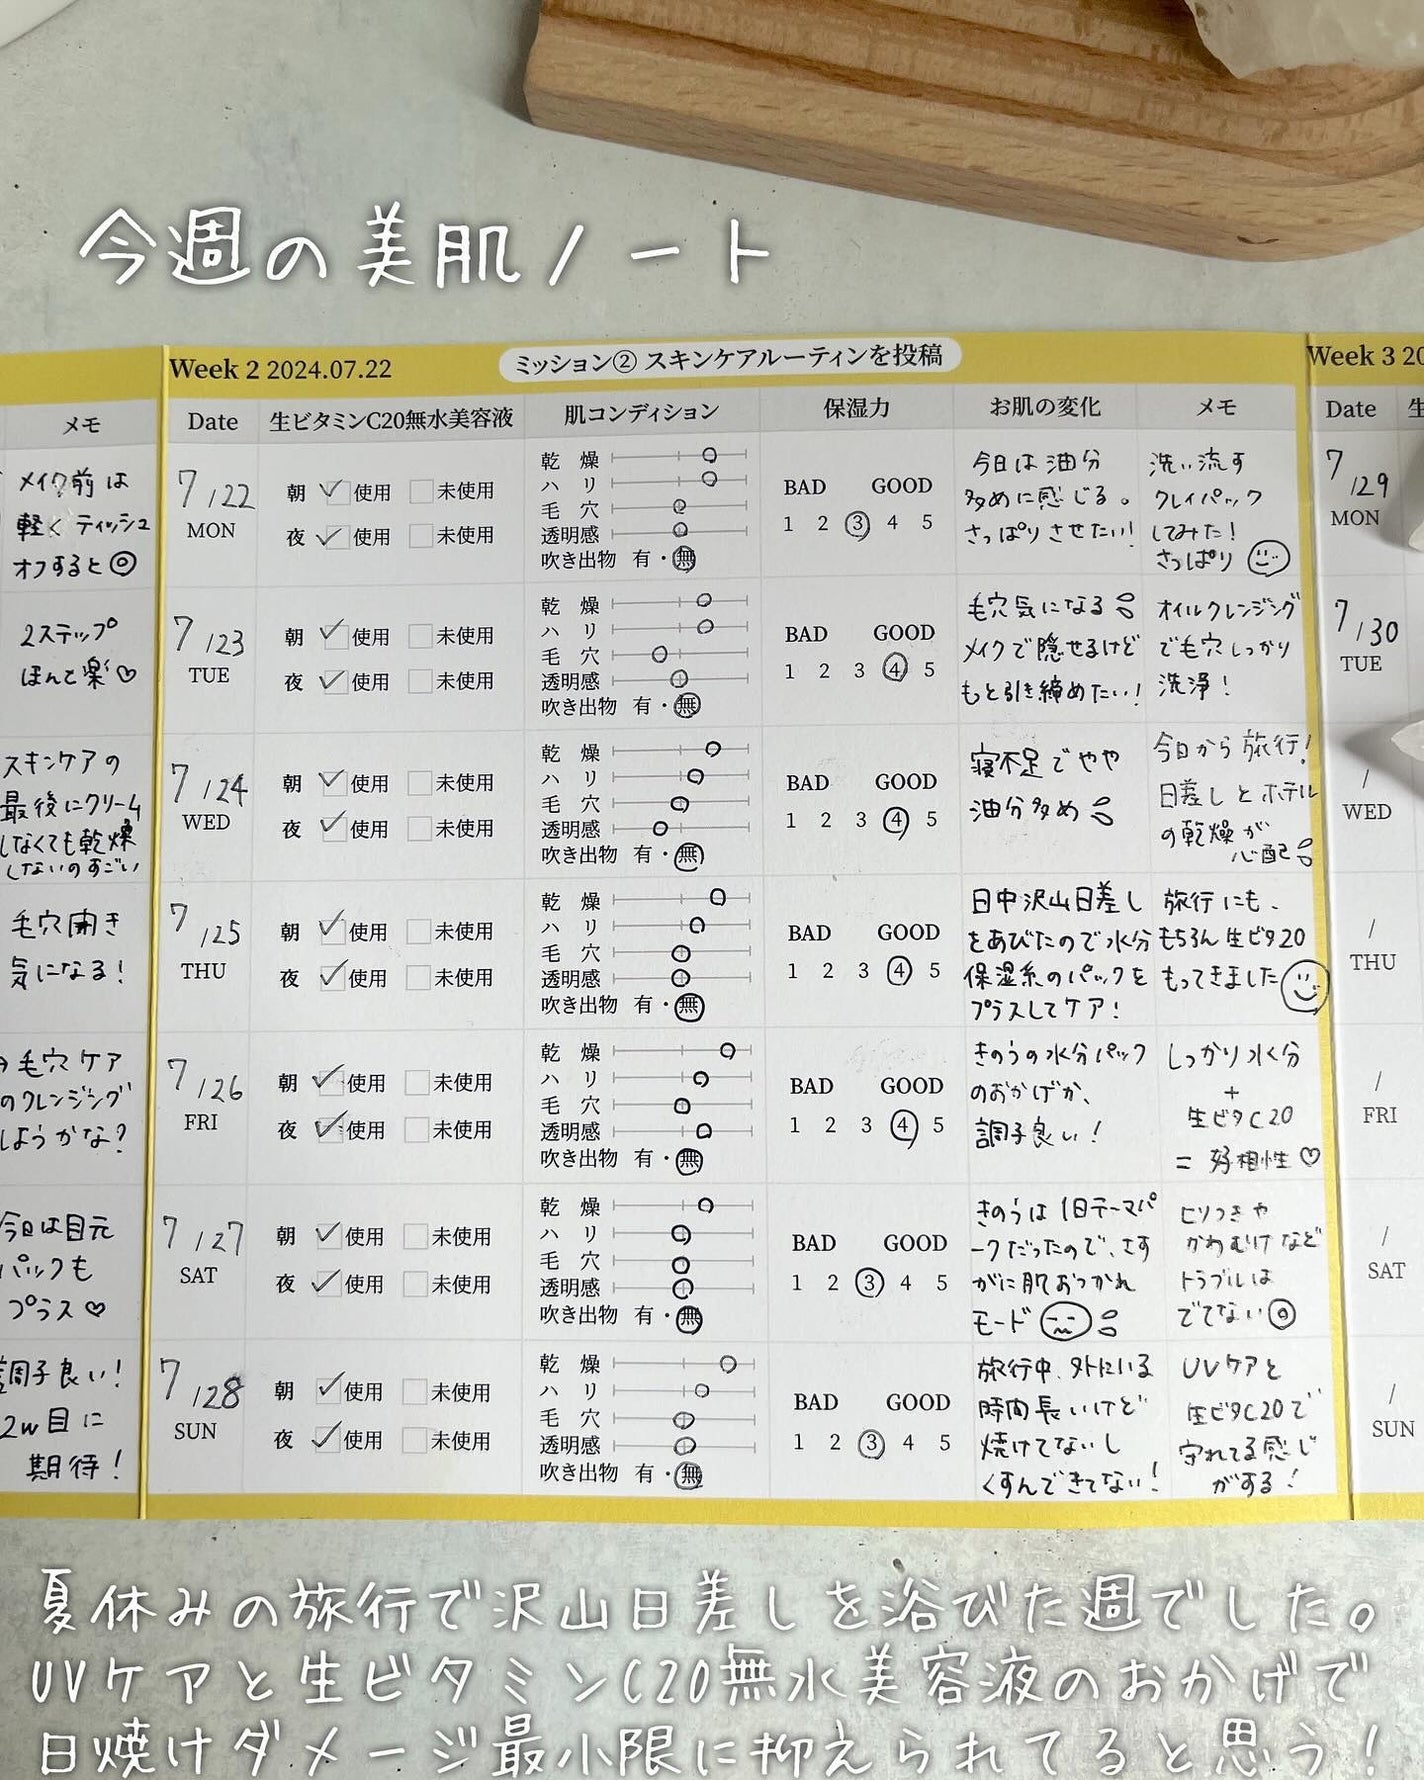 今週の美肌ノート
メモ
メイク前は
軽くティッシュ
オフすると◎
2ステップ
ほんと楽♡
スキンケアの
最後にクリーム
しなくても乾燥
しないのすごい
毛穴開き
気になる!
毛穴ケア
のクレンジング
しようかな?
今日は目元
パックも
プラス♡
調子良い!
2w目に
期待!
Week 2 2024.07.22
ミッション② スキンケアルーティンを投稿
Date 生ビタミンC20無水美容液 肌コンディション 保湿力 お肌の変化 メモ
7/22
MON
朝 ✓使用 □未使用
夜 ✓使用 □未使用
乾 燥
ハ リ
毛 穴
透明感
吹き出物 有・無
BAD GOOD
1 2 3 4 5
今日は油分
多めに感じる。
さっぱりさせたい!
洗い流す
クレイパック
してみた!
さっぱり
7/23
TUE
朝 ✓使用 □未使用
夜 ✓使用 □未使用
乾 燥
ハ リ
毛 穴
透明感
吹き出物 有・無
BAD GOOD
1 2 3 4 5
毛穴気になる
メイクで隠せるけど
もと引き締めたい!
オイルクレンジング
でも穴しっかり
洗浄!
7/24
WED
朝 ✓使用 □未使用
夜 ✓使用 □未使用
乾 燥
ハ リ
毛 穴
透明感
吹き出物 有・無
BAD GOOD
1 2 3 4 5
寝不足でやや
油分多め
今日から旅行!
日差しとホテル
の乾燥が、
心配
7/25
THU
朝 ✓使用 □未使用
夜 ✓使用 □未使用
乾 燥
ハ リ
毛 穴
透明感
吹き出物 有・無
BAD GOOD
1 2 3 4 5
日中沢山日差し
をあびたので水分
保湿系のパックを
プラスしてケア!
旅行にも、
もちろん生ビタ20
もってきました
7/26
FRI
朝 ✓使用 □未使用
夜 ✓使用 □未使用
乾 燥
ハ リ
毛 穴
透明感
吹き出物 有・無
BAD GOOD
1 2 3 4 5
きのうの水分パック
のおかげか、
調子良い!
しっかり水分
+
生ビタC20
= 好相性♡
7/27
SAT
朝 ✓使用 □未使用
夜 ✓使用 □未使用
乾 燥
ハ リ
毛 穴
透明感
吹き出物 有・無
BAD GOOD
1 2 3 4 5
きのうは1日テーマパ
ークだったので、さす
がに肌おつかれ
モード
ヒリつきや
かわむけなど
トラブルは
でてない◎
7/28
SUN
朝 ✓使用 □未使用
夜 ✓使用 □未使用
乾 燥
ハ リ
毛 穴
透明感
吹き出物 有・無
BAD GOOD
1 2 3 4 5
旅行中、外にいる
時間長いけど
焼けてないし
くすんできてない!
UVケアと
生ビタC20で
守れてる感じ
がする!
Week 3 20
Date 生
7/29
MON
7/30
TUE
/
WED
/
THU
/
FRI
/
SAT
/
SUN
夏休みの旅行で沢山日差しを浴びた週でした。
UVケアと生ビタミンC20無水美容液のおかげで
日焼けダメージ最小限に抑えられてると思う!